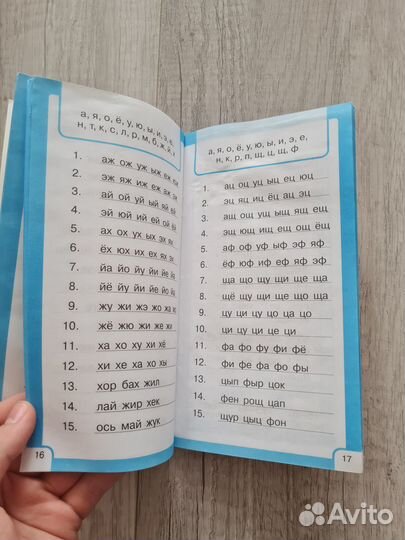 а, я, о, ё, у, ю, ы, и, э, е,
н, т, к, с, л, р, м, б, ж, й, х
1. аж ож уж ыж еж
2. эж яж иж еж аж
3. ай ой уй ый яй ей
4. эй юй ий ей ой ёй
5. ах ох ух ых эх ях
6. ёх юх их ех ях эх
7. йа йо йу йи йе йё
8. йё йу йи йе йо йа
9. жу жи жэ жо ха
10. жё жю жи же хи
11. ха хо ху хи хе
12. хи хе ха хо хы
13. хор бах жил
14. лай жир хек
15. ось май жук
16
а, я, о, ё, у, ю, ы, и, э, е,
н, к, р, п, щ, ц, щ, ф
1. ац оц уц ыц ец юц
2. эц яц иц ёц ац эц
3. ащ ощ ущ ыщ ящ ещ
4. эщ ющ ищ ещ ощ ёщ
5. аф оф уф ыф эф яф
6. ёф юф иф еф яф эф
7. ща що щу щи ще ща
8. щё щу щи ще що ща
9. цу ци цу цо ца цо
10. ци цу ци це ци
11. фа фо фу фи фё
12. фи фе фа фо фы
13. цып фыр цок
14. фен рощ цап
15. щур цыц фон
17
Avito